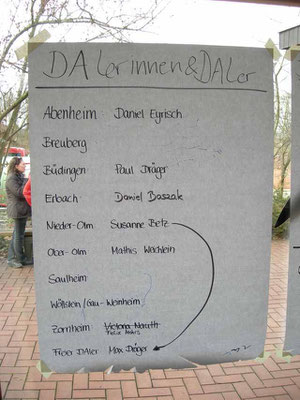 DALerinnen & DALer
Abenheim Daniel Eyrisch
Breuberg
Büdingen Paul Dräger
Erbach Daniel Baszak
Nieder-Olm Susanne Betz
Ober-Olm Mathis Wechlein
Saulheim
Wöllstein / Gau-Weinheim
Zornheim Victoria Nauth
Freier DALer Max Dräger